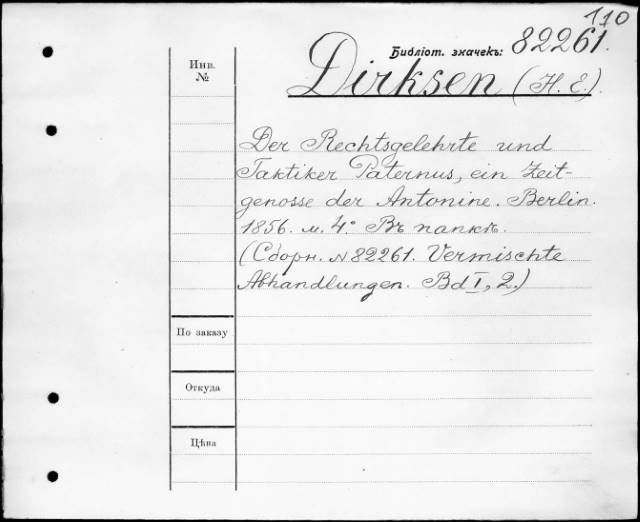 110
Библіот. значекъ: 82261.
Инв.
№
Dirksen (H. E.)
Der Rechtsgelehrte und
Taktiker Paternus, ein Zeit-
genosse der Antonine. Berlin.
1856. м. 4° Въ папкѣ.
(Сборн. № 82261. Vermischte
Abhandlungen. Bd I, 2.)
По заказу
Откуда
Цѣна